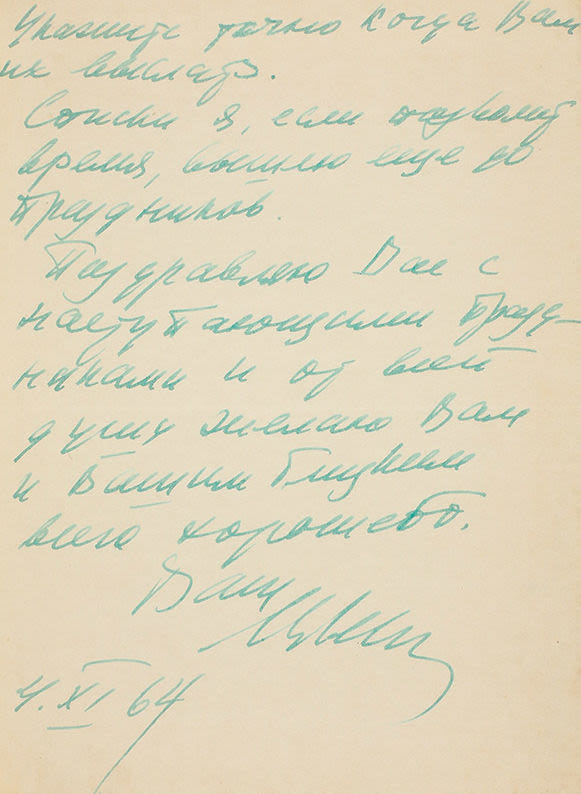 Укажите точно когда Вам
их выслать.
Списки я, если позволит
время, вышлю еще до
праздников.
Поздравляю Вас с
наступающими празд-
никами и от всей
души желаю Вам
и Вашим близким
всего хорошего.
Ваш
4.XI 64